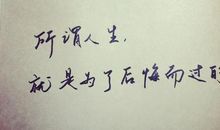 所谓人生,
就是为了后悔而过